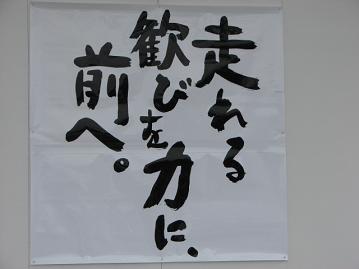 走れる
歓びを力に、
前へ。